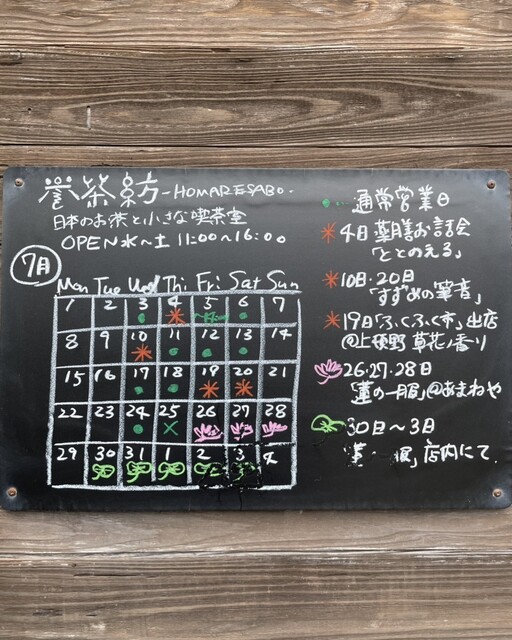 誉茶紡 -HOMARESABO-
日本のお茶と小さな喫茶室
OPEN 水〜土 11:00〜16:00
7月
Mon Tue Wed Thi Fri Sat Sun
1 2 3 4 5 6 7
8 9 10 11 12 13 14
15 16 17 18 19 20 21
22 23 24 25 26 27 28
29 30 31 1 2 3 4
通常営業日
4日 薬膳お話会
「ととのえる」
10日・20日
「すずめの箪音」
19日「ふくふく市」出店
@上野 草花ノ香り
26・27・28日
「蓮の一服」@あまねや
30日〜3日
店内にて.